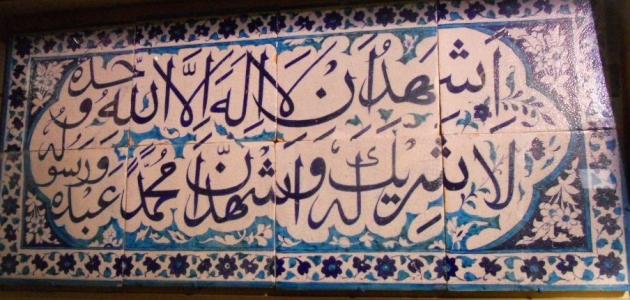 اَشْهَدُ اَنْ لَا اِلٰهَ اِلَّا اللّٰهُ وَحْدَهٗ
لَا شَرِيْكَ لَهٗ وَ اَشْهَدُ اَنَّ مُحَمَّدًا عَبْدُهٗ وَ رَسُوْلُهٗ